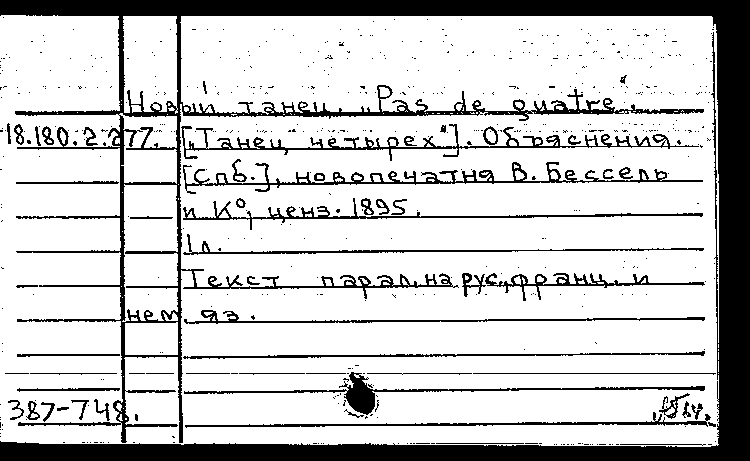 Новый танец. „Pas de quatre".
18.180.2.277. [„Танец четырех"]. Объяснения.
[Спб.], новопечатня В. Бессель
и К⁰, ценз. 1895.
1л.
Текст парал. на рус., франц. и
нем. яз.
387-748.